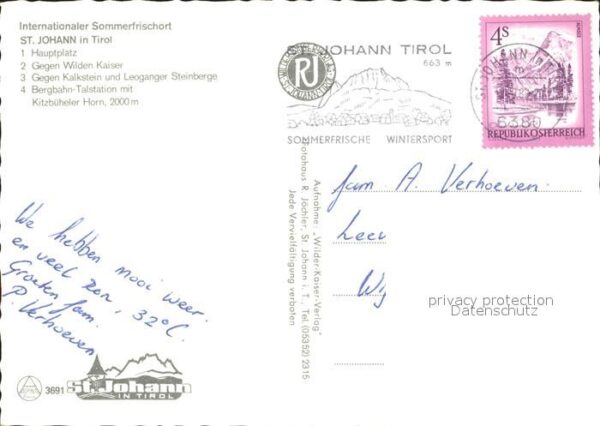 Internationaler Sommerfrischort
ST. JOHANN in Tirol
1 Hauptplatz
2 Gegen Wilden Kaiser
3 Gegen Kalkstein und Leoganger Steinberge
4 Bergbahn-Talstation mit
Kitzbüheler Horn, 2000 m
We hebben mooi weer
en veel zon, 32°C.
Groeten fam.
P Verhoeven
3691
St. Johann
IN TIROL
Aufnahme: „Wilder-Kaiser-Verlag"
Fotohaus R. Jöchler, St. Johann i. T., Tel. (05352) 2315
Jede Vervielfältigung verboten
JOHANN TIROL
663 m
RJ
SOMMERFRISCHE WINTERSPORT
ST. JOHANN IN
6380
4s
REPUBLIK ÖSTERREICH
fam A. Verhoeven.
privacy protection
Datenschutz